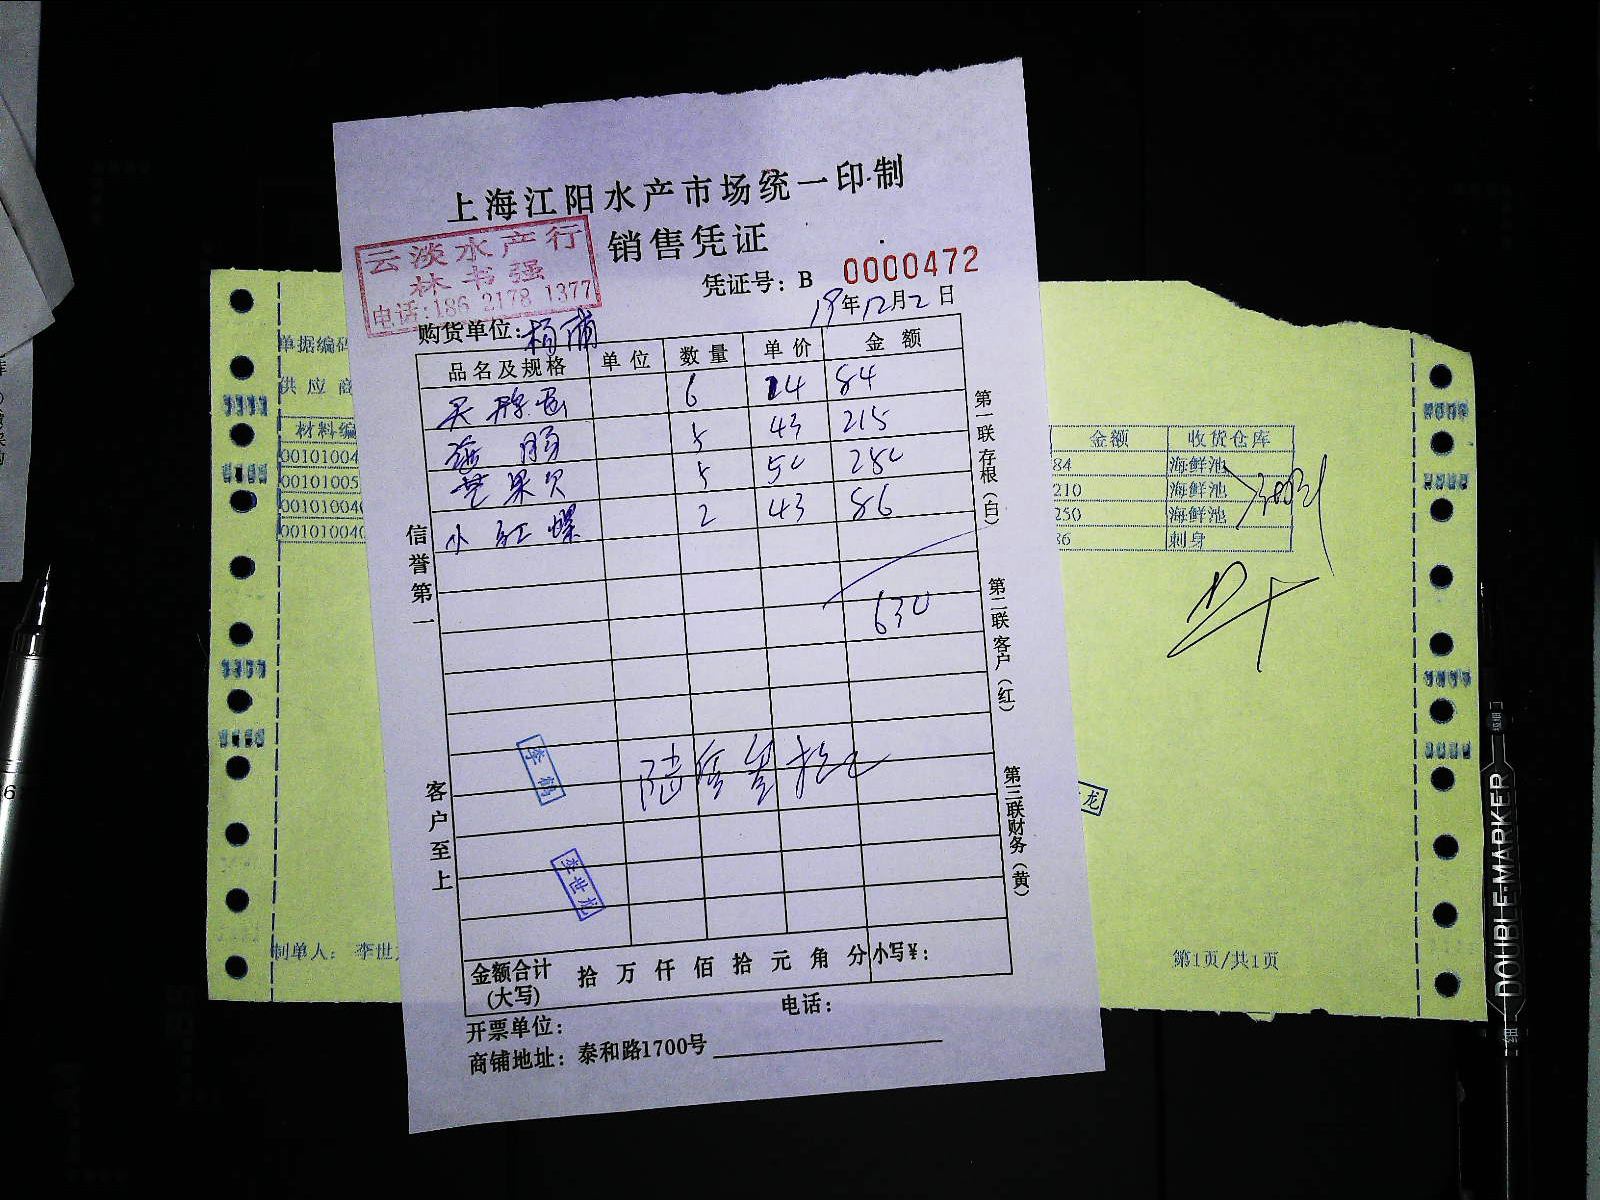 上海江阳水产市场统一印制
销售凭证
云淡水产行
林书强
电话:186 2178 1377
凭证号: B 0000472
19年12月2日
购货单位: 杨浦
品名及规格 单位 数量 单价 金额
6 14 84
海肠 5 43 215
苹果贝 5 50 250
小红螺 2 43 86
630
陆佰叁拾元
李鹤
李世龙
信誉第一
客户至上
第一联存根(白)
第二联客户(红)
第三联财务(黄)
金额合计(大写) 拾万仟佰拾元角分 小写¥:
电话:
开票单位:
商铺地址: 泰和路1700号
单据编码
供应商
材料编
00101004
00101005
00101004
00101004
金额 收货仓库
84 海鲜池
210 海鲜池
250 海鲜池
86 刺身
龙
制单人: 李世
第1页/共1页
DOUBLE-MARKER